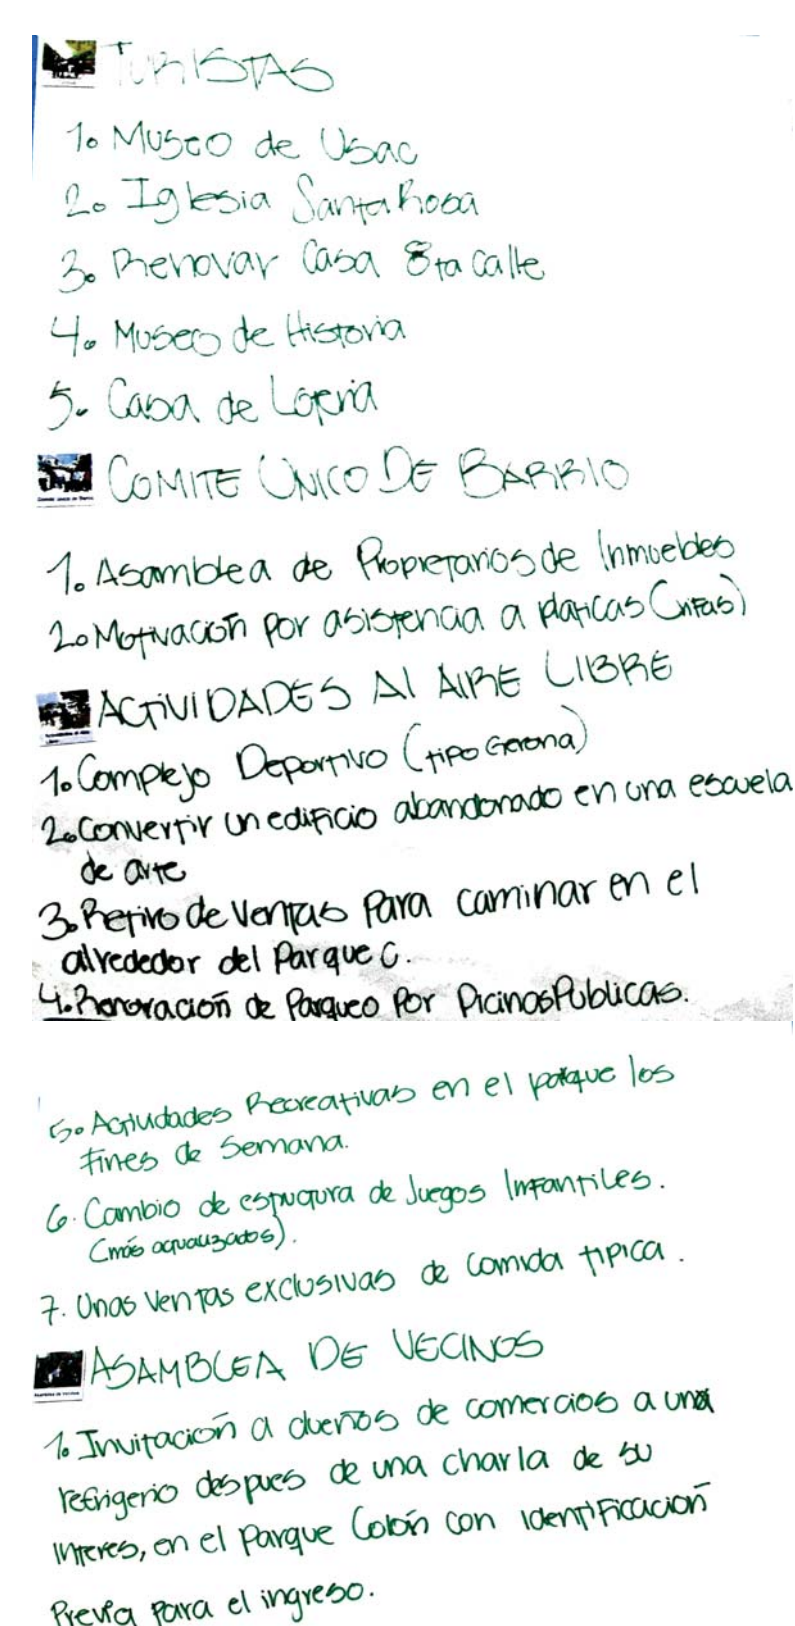 TURISTAS
1. Museo de Usac
2. Iglesia Santa Rosa
3. Renovar Casa 8ta calle
4. Museo de Historia
5. Casa de
COMITE UNICO DE BARRIO
1. Asamblea de Propietarios de Inmuebles
2. Motivación por asistencia a platicas (rifas)
ACTIVIDADES Al AIRE LIBRE
1. Complejo Deportivo (tipo Gerona)
2. Convertir un edificio abandonado en una escuela
de arte
3. Retiro de ventas para caminar en el
alrededor del Parque C.
4. Renovación de Parqueo Por Picinas Publicas.
5. Actividades Recreativas en el parque los
fines de semana.
6. Cambio de de Juegos Infantiles.
(más actualizados).
7. Unas ventas exclusivas de comida tipica.
ASAMBLEA DE VECINOS
1. Invitación a dueños de comercios a una
refrigerio despues de una charla de su
interes, en el Parque Colón con identificación
Previa para el ingreso.